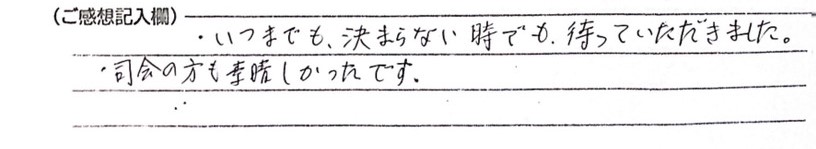 (ご感想記入欄)
・いつまでも、決まらない時でも、待っていただきました。
・司会の方も素晴しかったです.